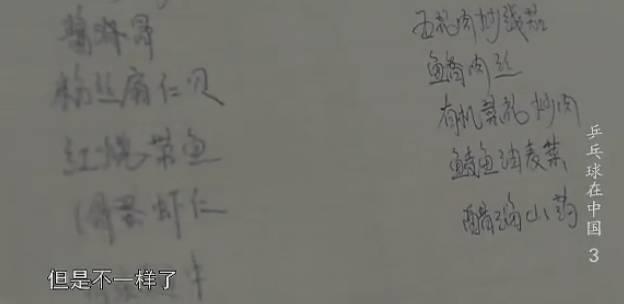 粉丝扇仁贝
红烧带鱼
虾仁
五花肉炒线茄
鱼香肉丝
有机菜花炒肉
鲮鱼油麦菜
醋溜山药
乒乓球在中国 3
但是不一样了